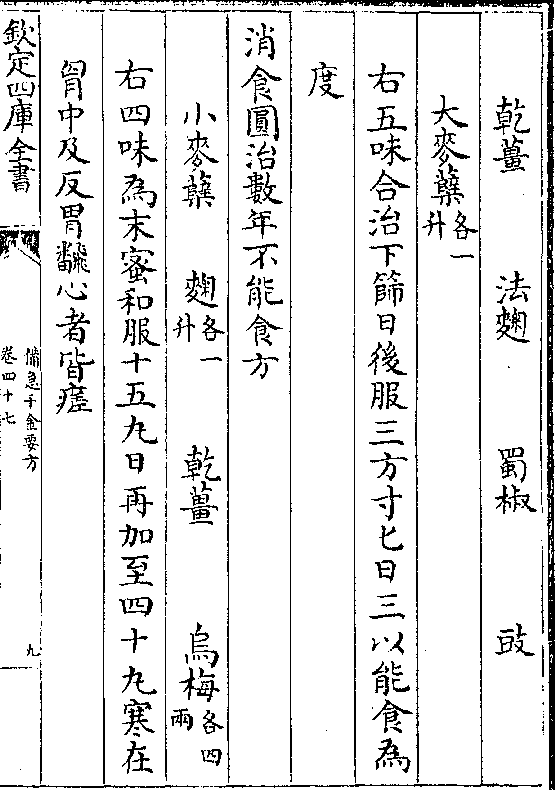 乾薑 法麴 蜀椒 豉
大麥蘗各一升
右五味合治下篩日後服三方寸匕日三以能食為
度
消食圓治數年不能食方
小麥蘗 麴各一升 乾薑 烏梅各四兩
右四味為末蜜和服十五丸日再加至四十丸寒在
胷中及反胃飜心者皆瘥
欽定四庫全書
備急千金要方
卷四十七
九